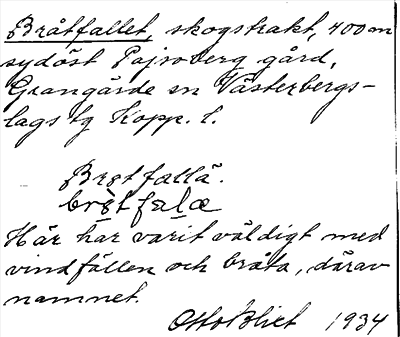 Bråtfallet, skogstrakt, 400 m
sydöst Pajsoberg gård,
Grangärde sn Västerbergs-
lags tg Kopp. l.
Brɑtfallä.
Här har varit väldigt med
vindfällen och bråta, därav
namnet.
Otto Blixt 1934